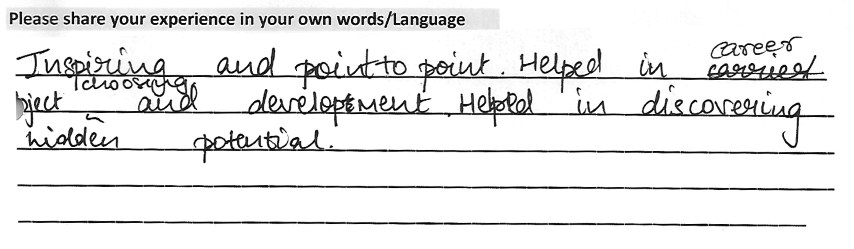 Please share your experience in your own words/Language
Inspiring and point to point. Helped in career
choosing
ject and development. Helped in discovering
hidden potential.